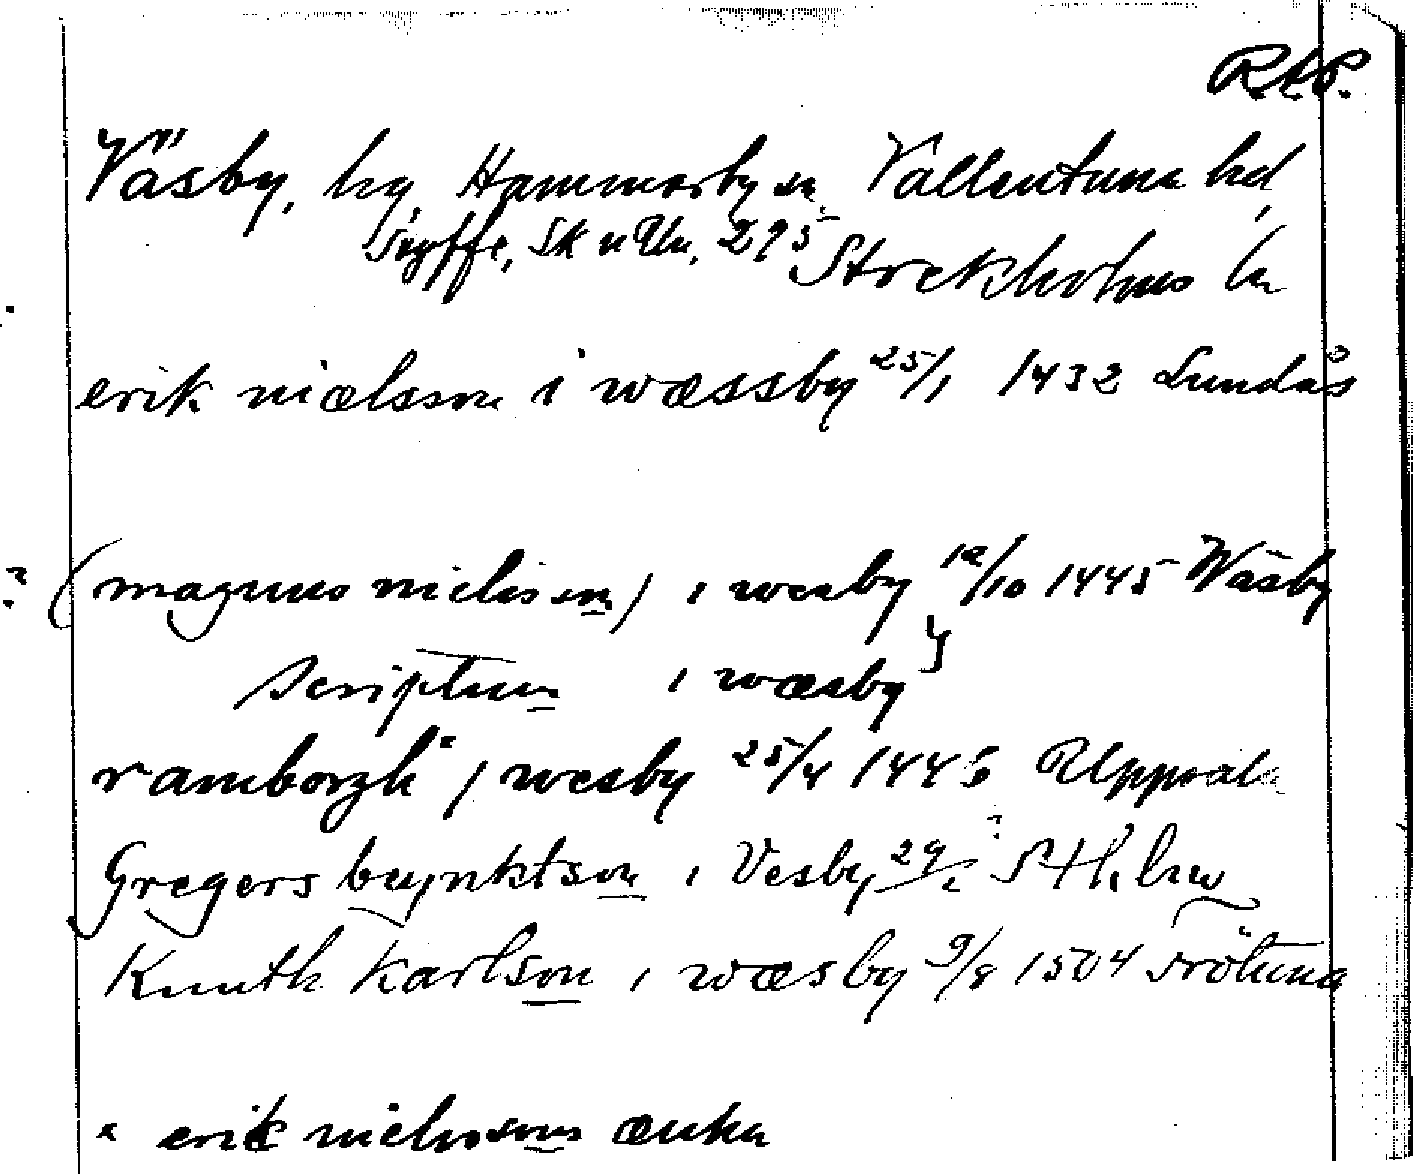 RAP.
Väsby, hg, Hammarby sn. Vallentuna hd,
Styffe, Sk u Un, 295 Stockholms ln
erik niælsson i wæssby 25/1 1432 Lundås
? (magnus nielisson) i wesby 12/10 1445 Wäsby
scriptum i wæsby }
ramborgh * i wesby 25/4 1445 Uppsala
Gregers beynktson i Vesby 29/ ? Sthlm
Knuth Karlson i wæsby 9/8 1504 Frötuna
* erik nielissons ænka